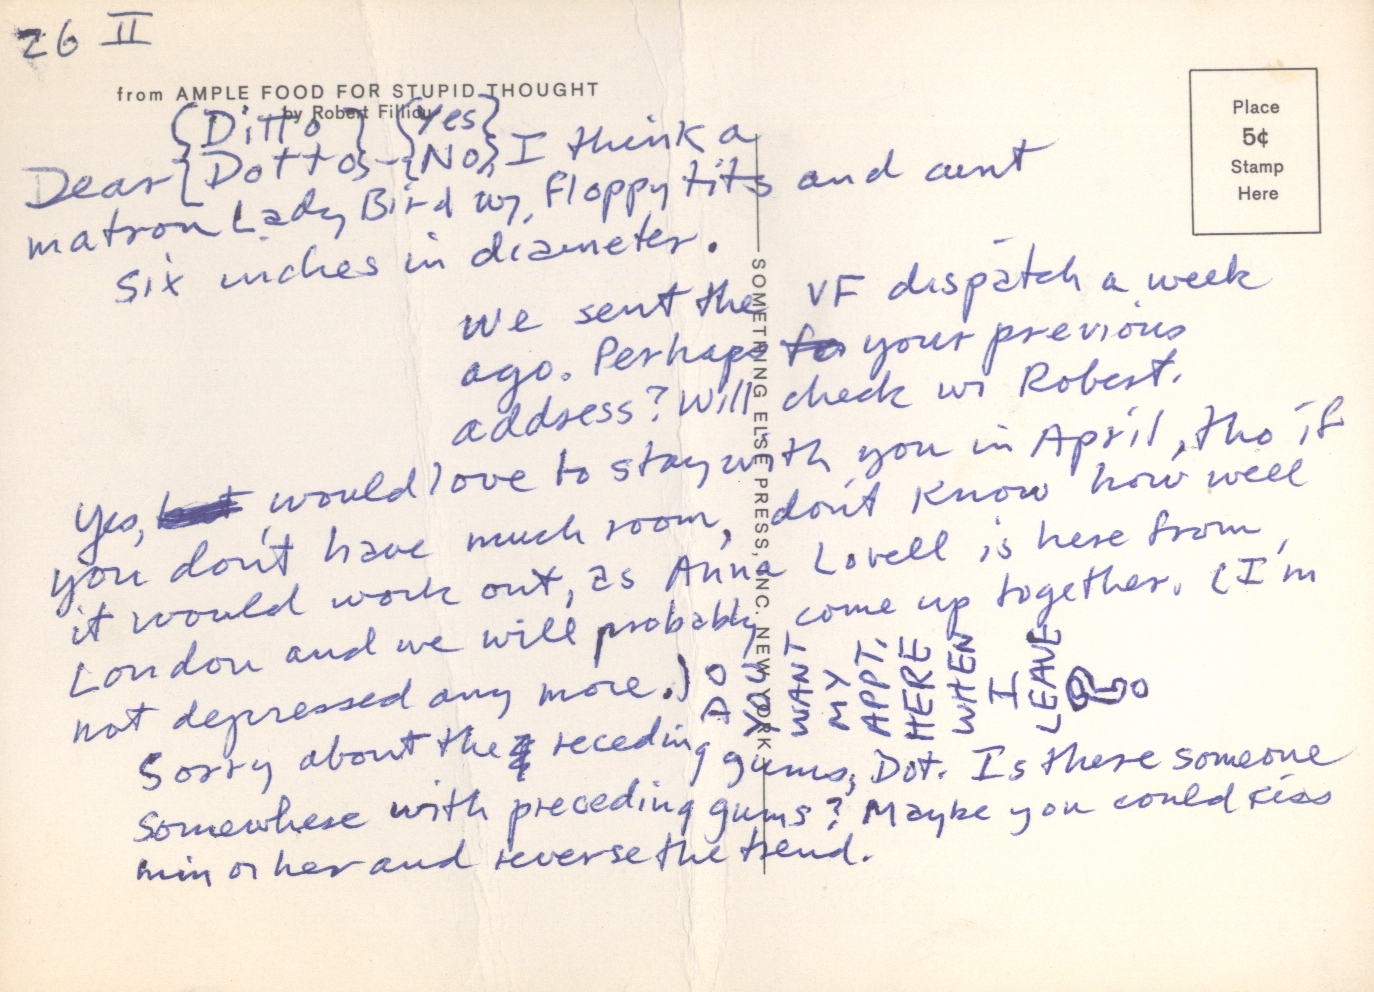 26 II
from AMPLE FOOD FOR STUPID THOUGHT
by Robert Filliou
{Ditto} {Yes}
Dear {Dottos - {No, I think a
matron Lady Bird w/ floppy tits and cunt
six inches in diameter.
We sent the VF dispatch a week
ago. Perhaps to your previous
address? Will check w/ Robert.
Yes, but would love to stay with you in April, tho if
you don't have much room, don't know how well
it would work out, as Anna Lovell is here from
London and we will probably come up together. (I'm
not depressed any more.)
DO
YOU
WANT
MY
APPT.
HERE
WHEN
I
LEAVE
?
Sorry about the receding gums, Dot. Is there someone
somewhere with preceding gums? Maybe you could kiss
him or her and reverse the trend.
Place
5¢
Stamp
Here
SOMETHING ELSE PRESS, INC. NEW YORK